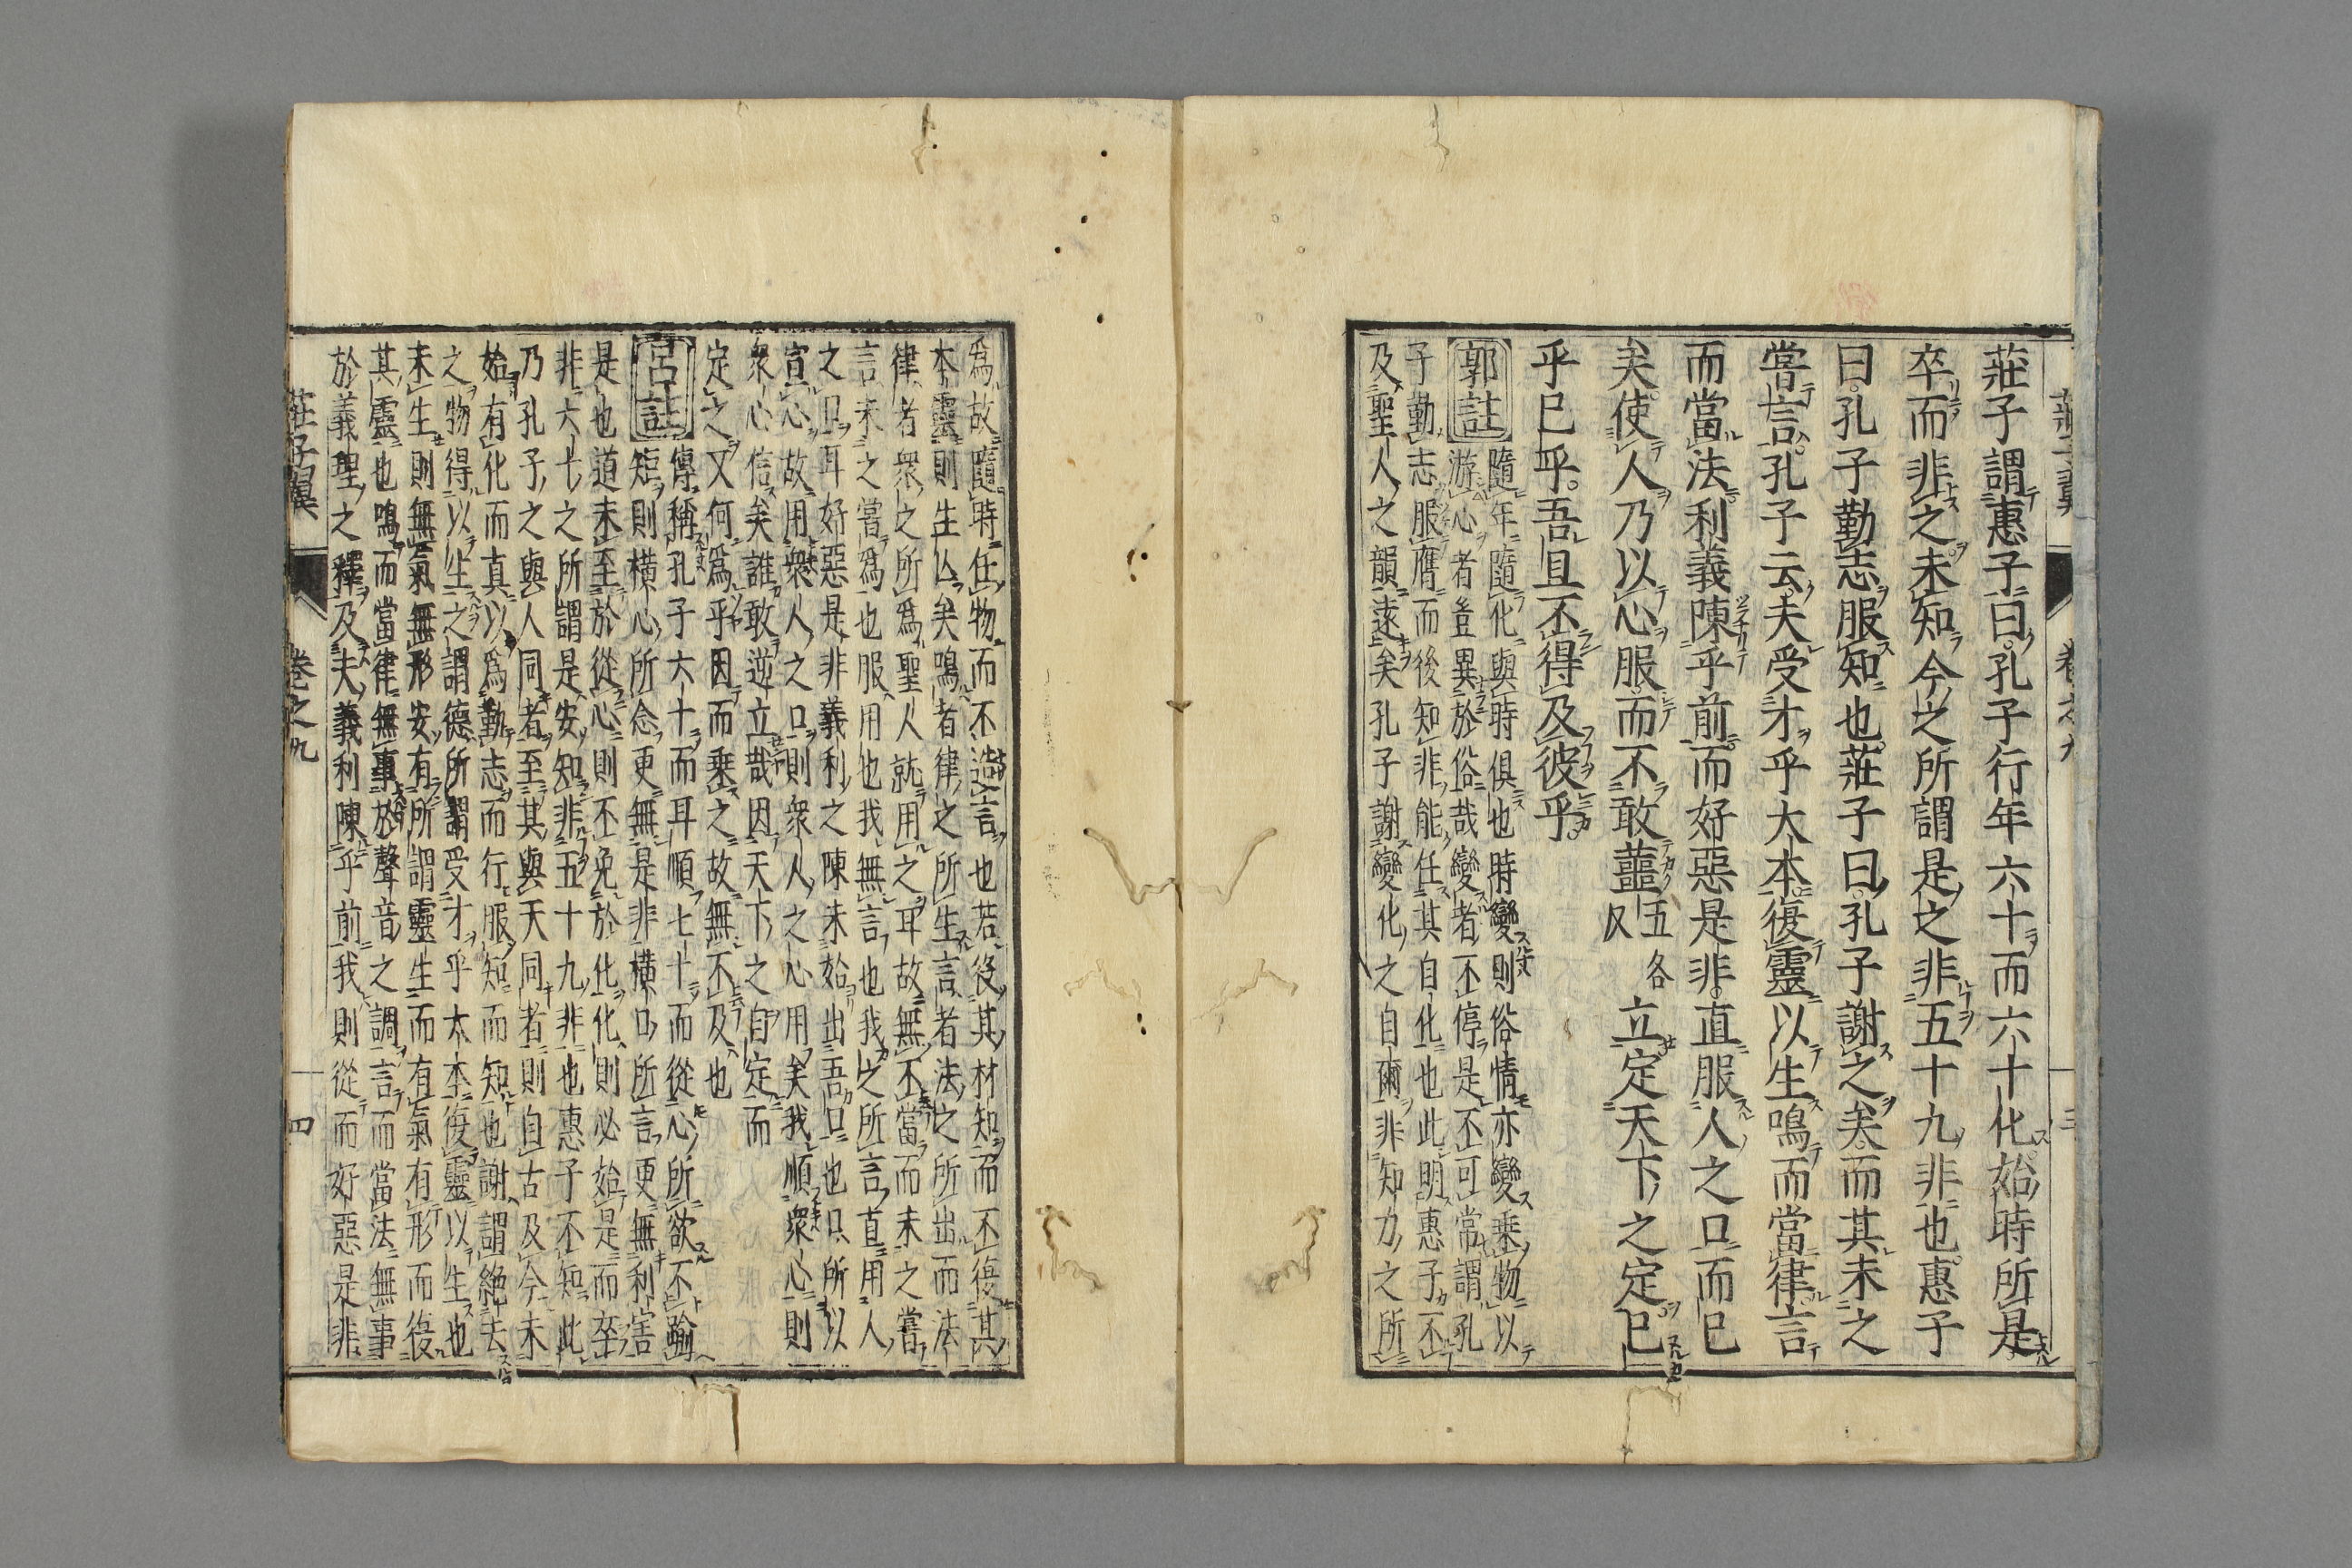 莊子翼 卷之九 三
莊子謂惠子曰孔子行年六十而六十化始時所是
卒而非之未知今之所謂是之非五十九非也惠子
曰孔子勤志服知也莊子曰孔子謝之矣而其未之
嘗言孔子云夫受才乎大本復靈以生鳴而當律言
而當法利義陳乎前而好惡是非直服人之口而已
矣使人乃以心服而不敢蘁五各反立定天下之定已
乎已乎吾且不得及彼乎
郭註
隨年隨化與時俱也時變則俗情亦變乘物以
游心者豈異於俗哉變者不停是不可常謂孔
子勤志服膺而後知非能任其自化也此明惠子不
及聖人之韻遠矣孔子謝變化之自爾非知力之所
爲故隨時任物而不造言也若役其材知而不復其
本靈則生亾矣鳴者律之所生言者法之所出而法
律者衆之所爲聖人就用之耳故無不當而未之嘗
言未之嘗爲也服用也我無言也我之所言直用人
之口耳好惡是非義利之陳未始出吾口也口所以
宣心故用衆人之口則衆人之心用矣我順衆心則
衆心信矣誰敢逆立哉因天下之自定而
定之又何爲乎因而乘之故無不及也
呂註
傳稱孔子六十而耳順七十而從心所欲不踰
矩則橫心所念更無是非橫口所言更無利害
是也道未至於從心則不免於化化則必始是而卒
非六十之所謂是安知非五十九非也惠子不知此
乃孔子之與人同者至其與天同者則自古及今未
始有化而直以爲勤志而行服知而知也謝謂絶去
之物得以生之謂德所謂受才乎大本復靈以生也
未生則無氣無形安有所謂靈生而有氣有形而後
其靈也鳴而當律無事於聲音之調言而當法無事
於義理之釋及夫義利陳乎前我則從而好惡是非
莊子翼 卷之九 四